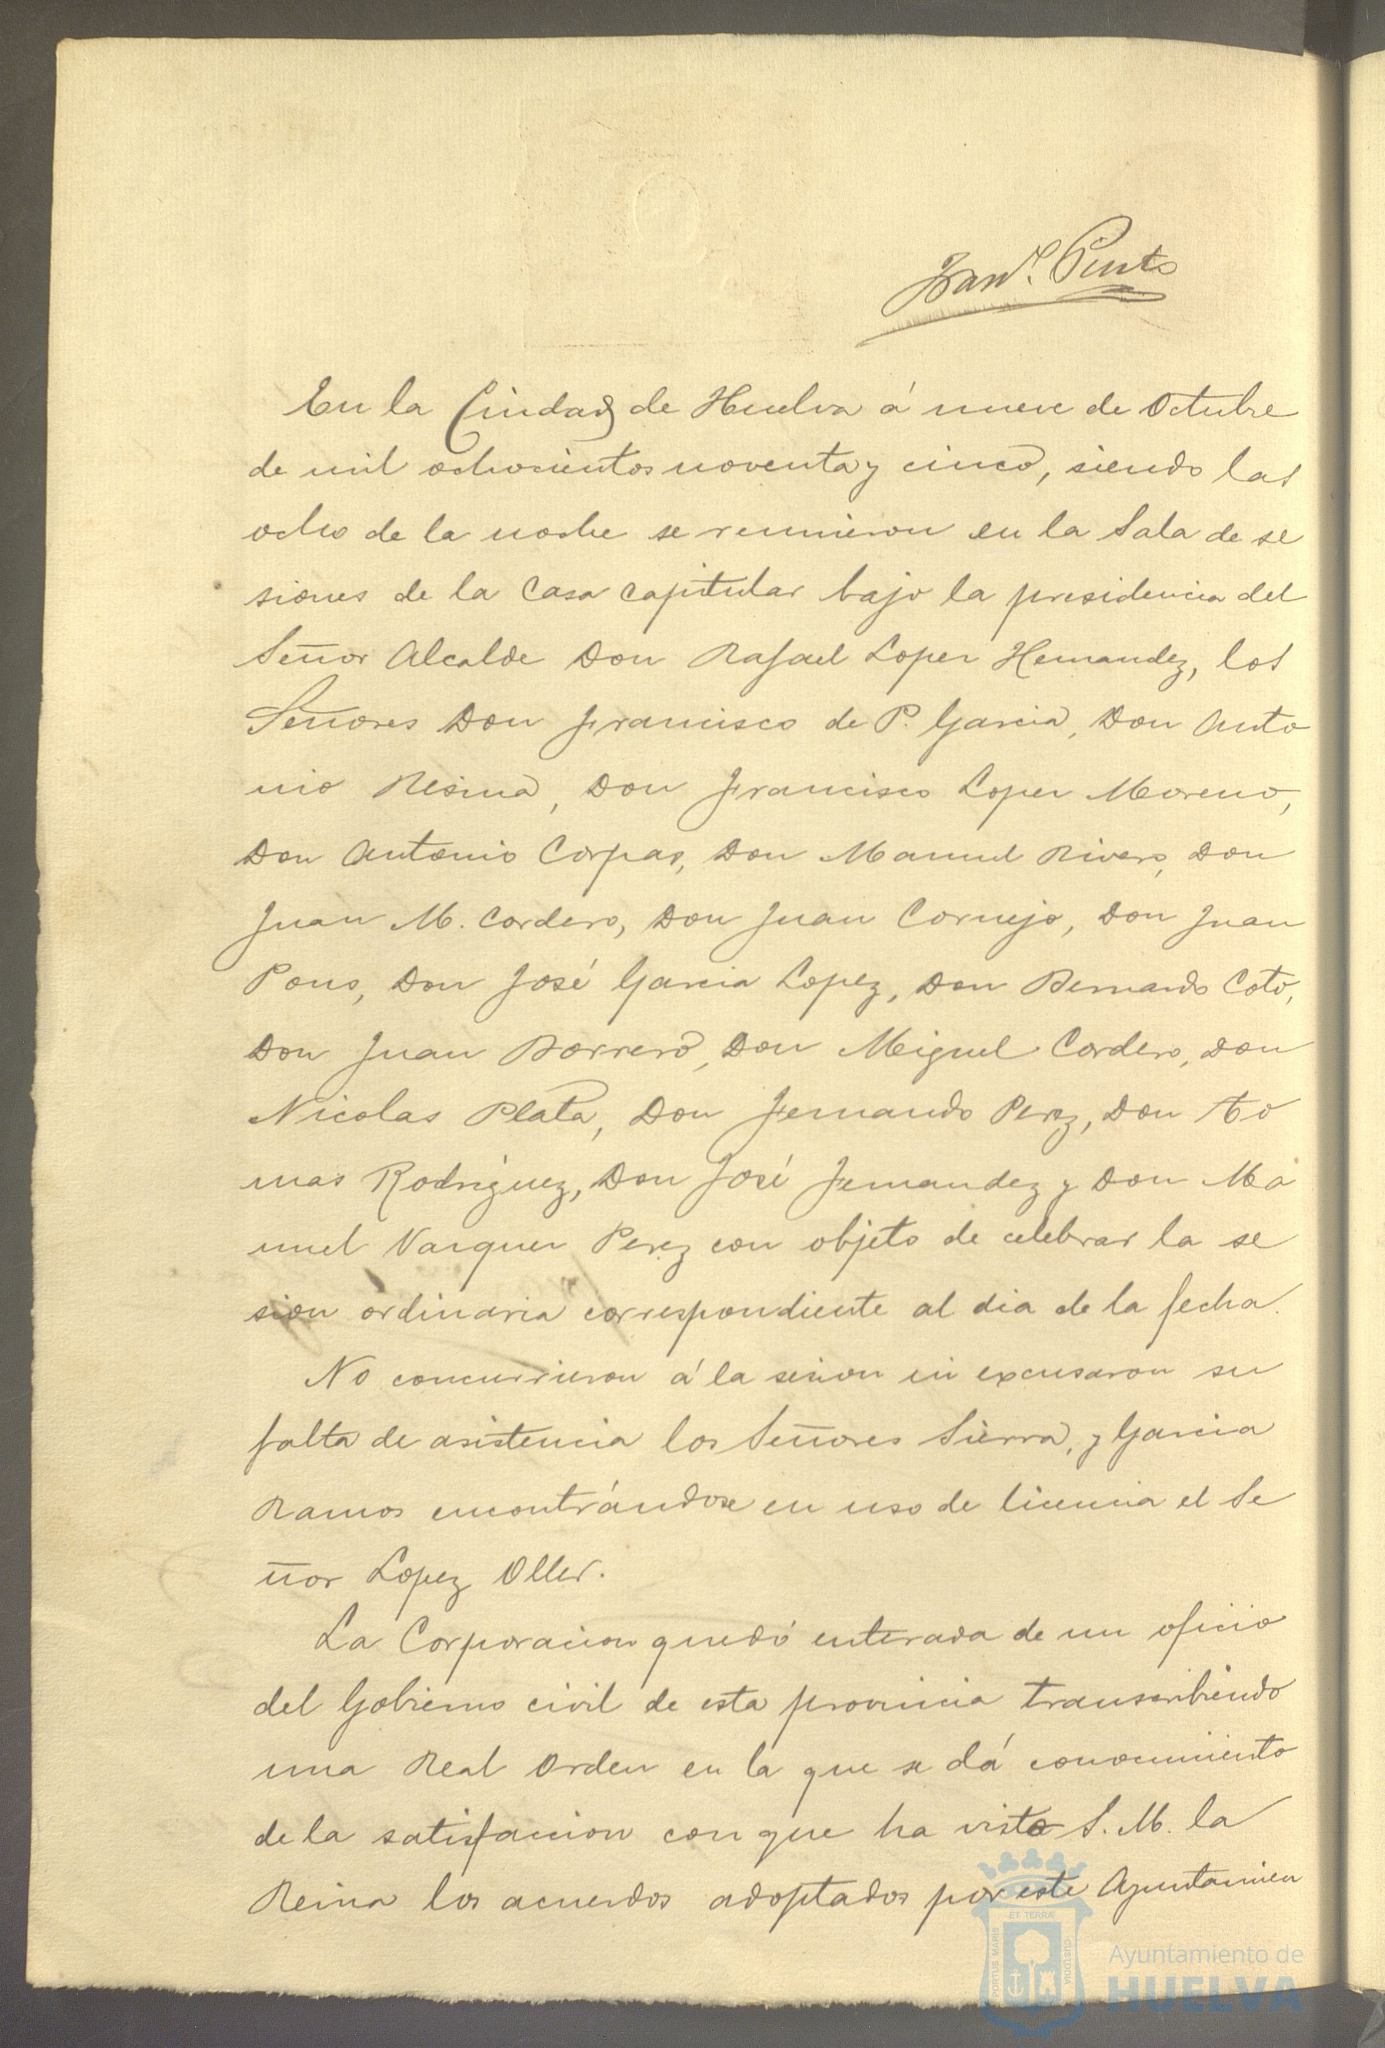 Fran.co Pinto
En la Ciudad de Huelva á nueve de Octubre
de mil ochocientos noventa y cinco, siendo las
ocho de la noche se reunieron en la Sala de se
siones de la Casa capitular bajo la presidencia del
Señor Alcalde Don Rafael Loper Hernandez, los
Señores Don Francisco de P. Garcia, Don Anto
nio Resina, Don Francisco Loper Moreno,
Don Antonio Corpas, Don Manuel Rivero, Don
Juan M. Cordero, Don Juan Cornejo, Don Juan
Pons, Don José Garcia Lopez, Don Bernardo Coto,
Don Juan Borrero, Don Miguel Cordero, Don
Nicolas Plata, Don Fernando Perez, Don To
mas Rodriguez, Don José Fernandez y Don Ma
nuel Varquer Perez con objeto de celebrar la se
sion ordinaria correspondiente al dia de la fecha.
No concurrieron á la sesion ni excusaron su
falta de asistencia los Señores Sierra, y Garcia
Ramos encontrándose en uso de licencia el Se
ñor Lopez Oller.
La Corporacion quedó enterada de un oficio
del Gobierno civil de esta provincia transcribiendo
una Real Orden en la que se dá conocimiento
de la satisfaccion con que ha visto S. M. la
Reina los acuerdos adoptados por este Ayuntamien
ET TERRÆ
PORTUS MARIS
CUSTODIA
Ayuntamiento de
HUELVA